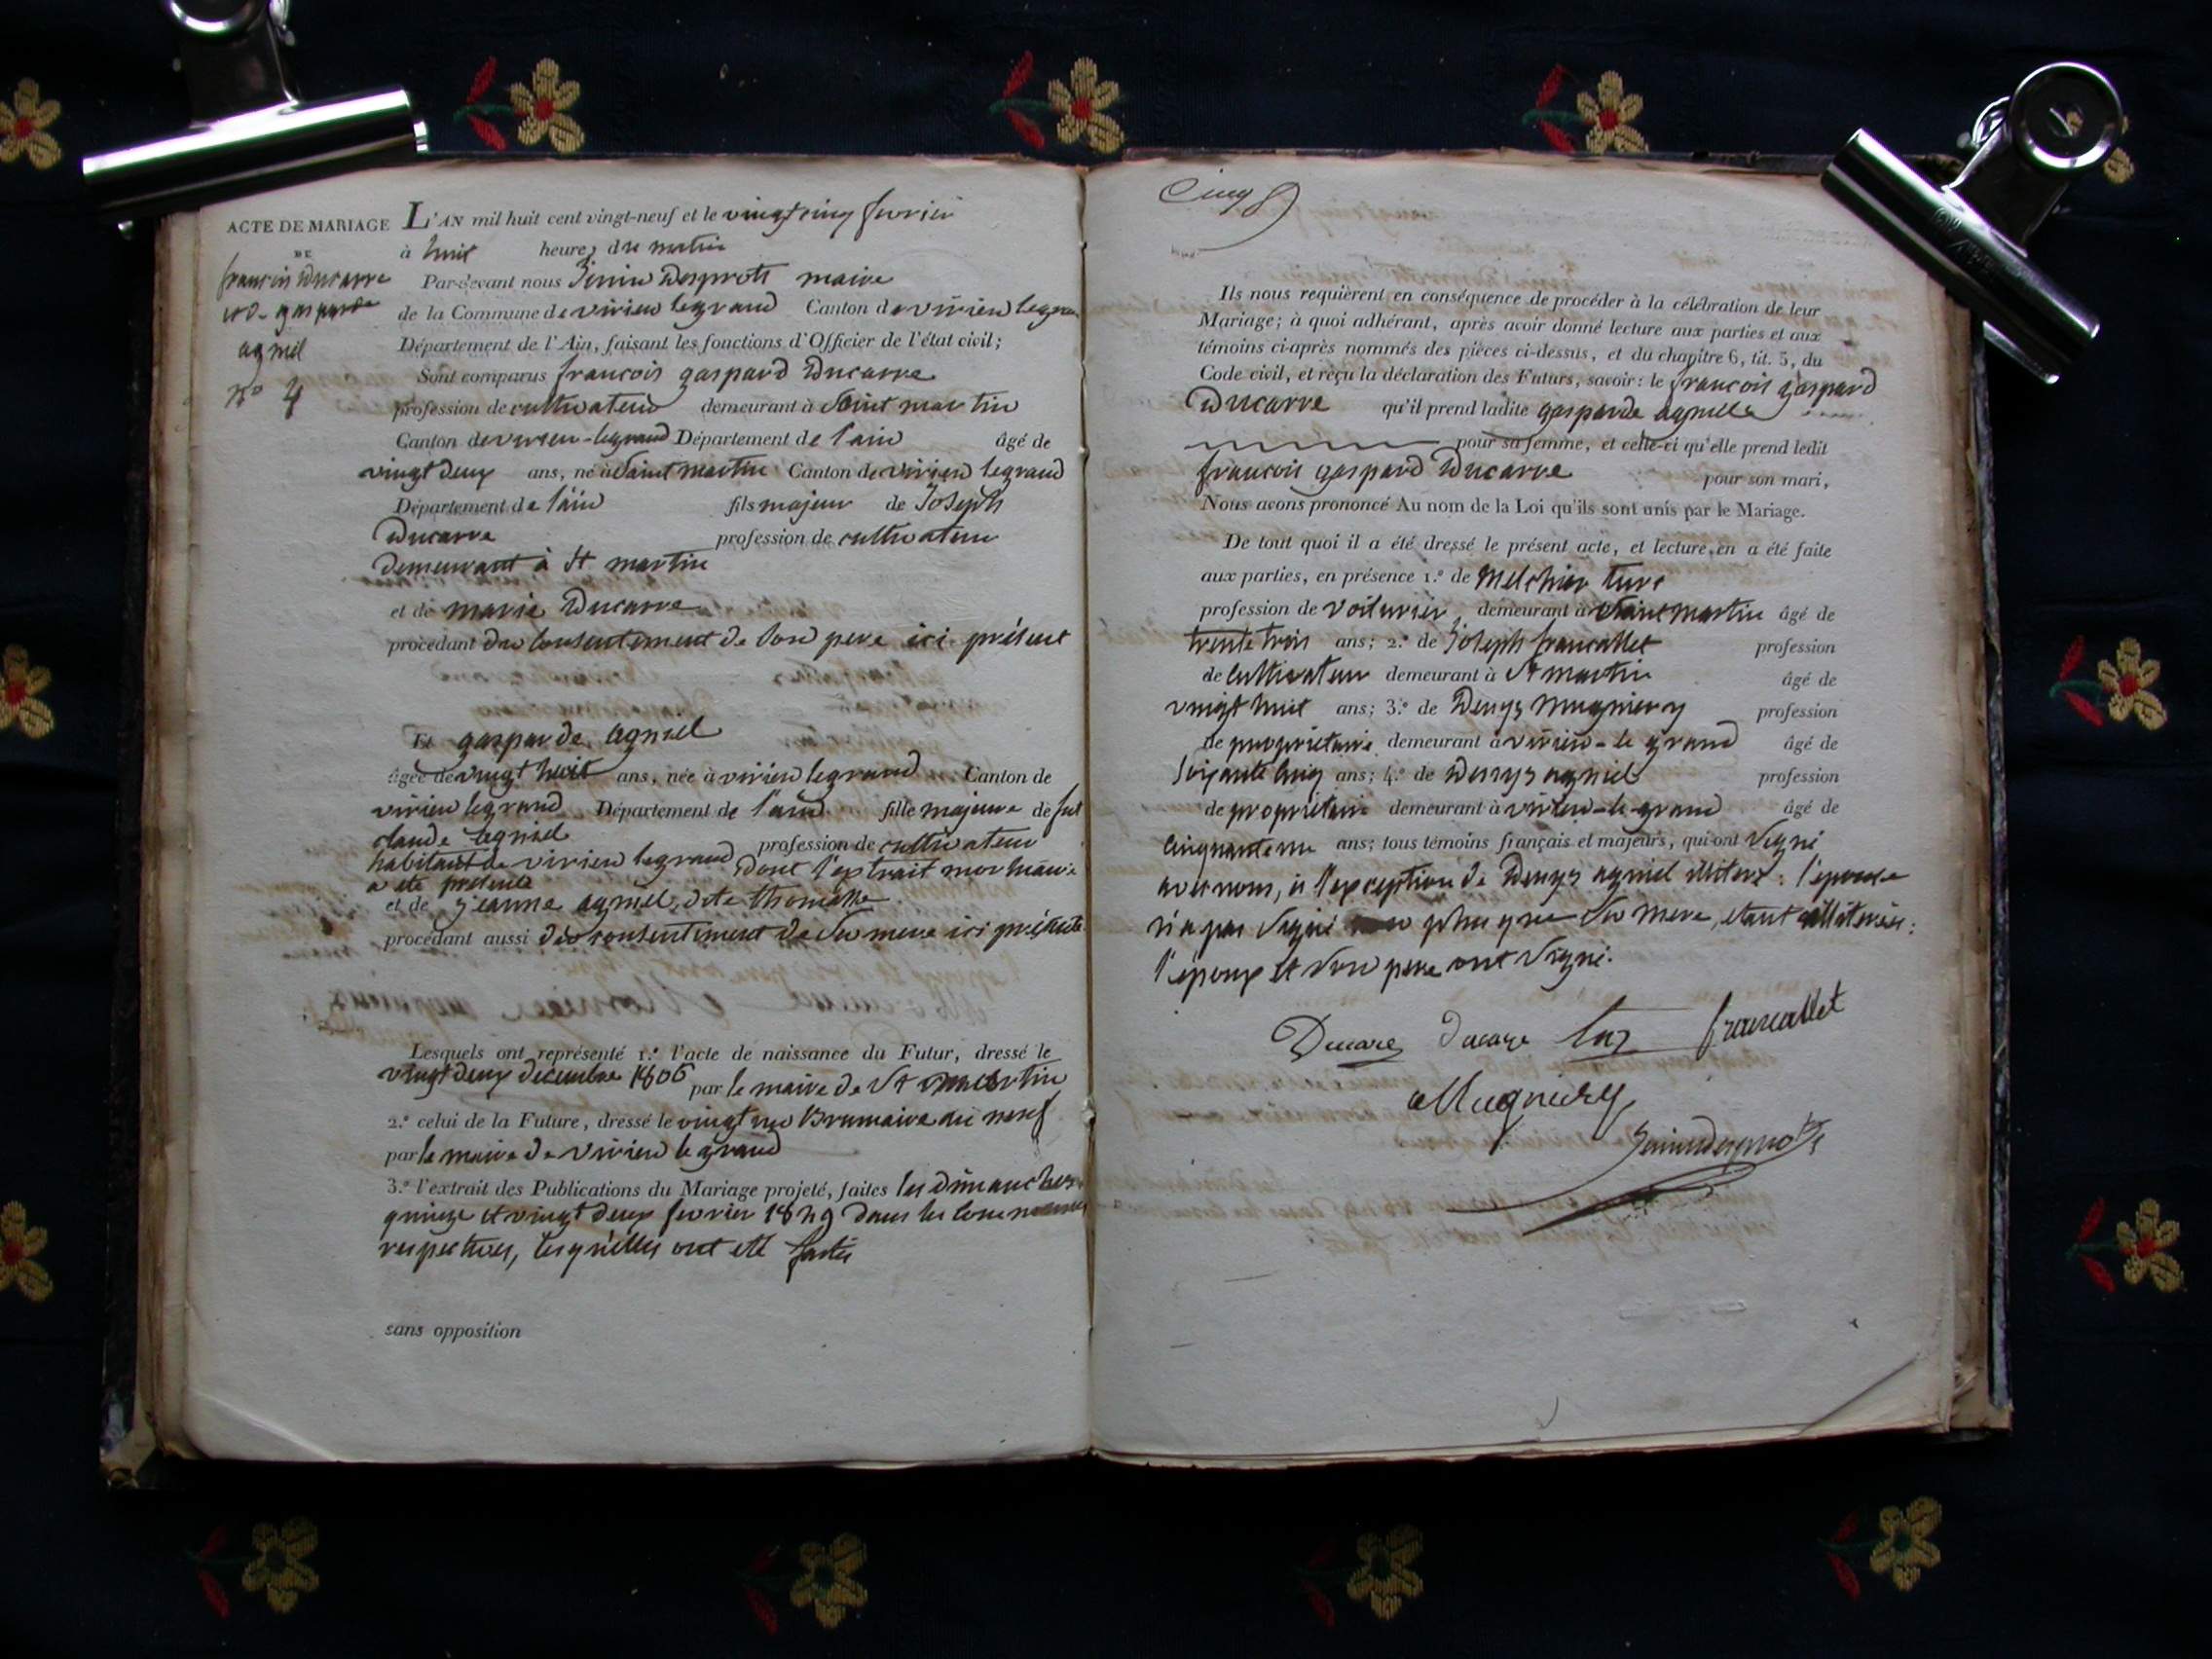 ACTE DE MARIAGE
DE
francois Ducarre
et de gasparde
agniel
N° 4
L'AN mil huit cent vingt-neuf et le vingt cinq fevrier
à huit heures du matin
Par-devant nous Jenin Desprots maire
de la Commune de virieu legrand Canton de virieu legrand
Département de l'Ain, faisant les fonctions d'Officier de l'état civil;
Sont comparus francois gaspard Ducarre
profession de cultivateur demeurant à Saint martin
Canton de virieu-legrand Département de l'ain âgé de
vingt deux ans, né à Saint martin Canton de virieu legrand
Département de l'ain fils majeur de Joseph
Ducarre profession de cultivateur
Demeurant à St martin
et de marie Ducarre
procédant du consentement de son pere ici présent
Et gasparde agniel
âgée de vingt huit ans, née à virieu legrand Canton de
virieu legrand Département de l'ain fille majeure de fut
claude agniel profession de cultivateur
habitant de virieu legrand Dont l'extrait mortuaire
a été présenté
et de jeanne agniel, dite thomasse
procédant aussi du consentement de sa mere ici présente
Lesquels ont représenté 1.° l'acte de naissance du Futur, dressé le
vingt deux decembre 1806 par le maire de St martin
2.° celui de la Future, dressé le vingt un Brumaire an neuf
par le maire de virieu le grand
3.° l'extrait des Publications du Mariage projeté, faites les dimanches
quinze et vingt deux fevrier 1829 dans les communes
respectives, lesquelles ont été faites
sans opposition
Cinq
Ils nous requièrent en conséquence de procéder à la célébration de leur
Mariage; à quoi adhérant, après avoir donné lecture aux parties et aux
témoins ci-après nommés des pièces ci-dessus, et du chapitre 6, tit. 5, du
Code civil, et reçu la déclaration des Futurs, savoir: le francois gaspard
Ducarre qu'il prend ladite gasparde agniel
pour sa femme, et celle-ci qu'elle prend ledit
francois gaspard Ducarre pour son mari,
Nous avons prononcé Au nom de la Loi qu'ils sont unis par le Mariage.
De tout quoi il a été dressé le présent acte, et lecture en a été faite
aux parties, en présence 1.° de Melchior
profession de voiturier, demeurant à Saint martin âgé de
trente trois ans; 2.° de Joseph francallet profession
de cultivateur demeurant à St martin âgé de
vingt huit ans; 3.° de Denys Mugniery profession
de propriétaire demeurant à virieu-le grand âgé de
soixante cinq ans; 4.° de Denys agniel profession
de propriétaire demeurant à virieu-le-grand âgé de
cinquante un ans; tous témoins français et majeurs, qui ont signé
avec nous, à l'exception de Denys agniel : l'épouse
n'a pas signé non plus que sa mere, etant :
l'époux et son pere ont signé.
Ducare Ducare francallet
Mugniery
Jenindesprots